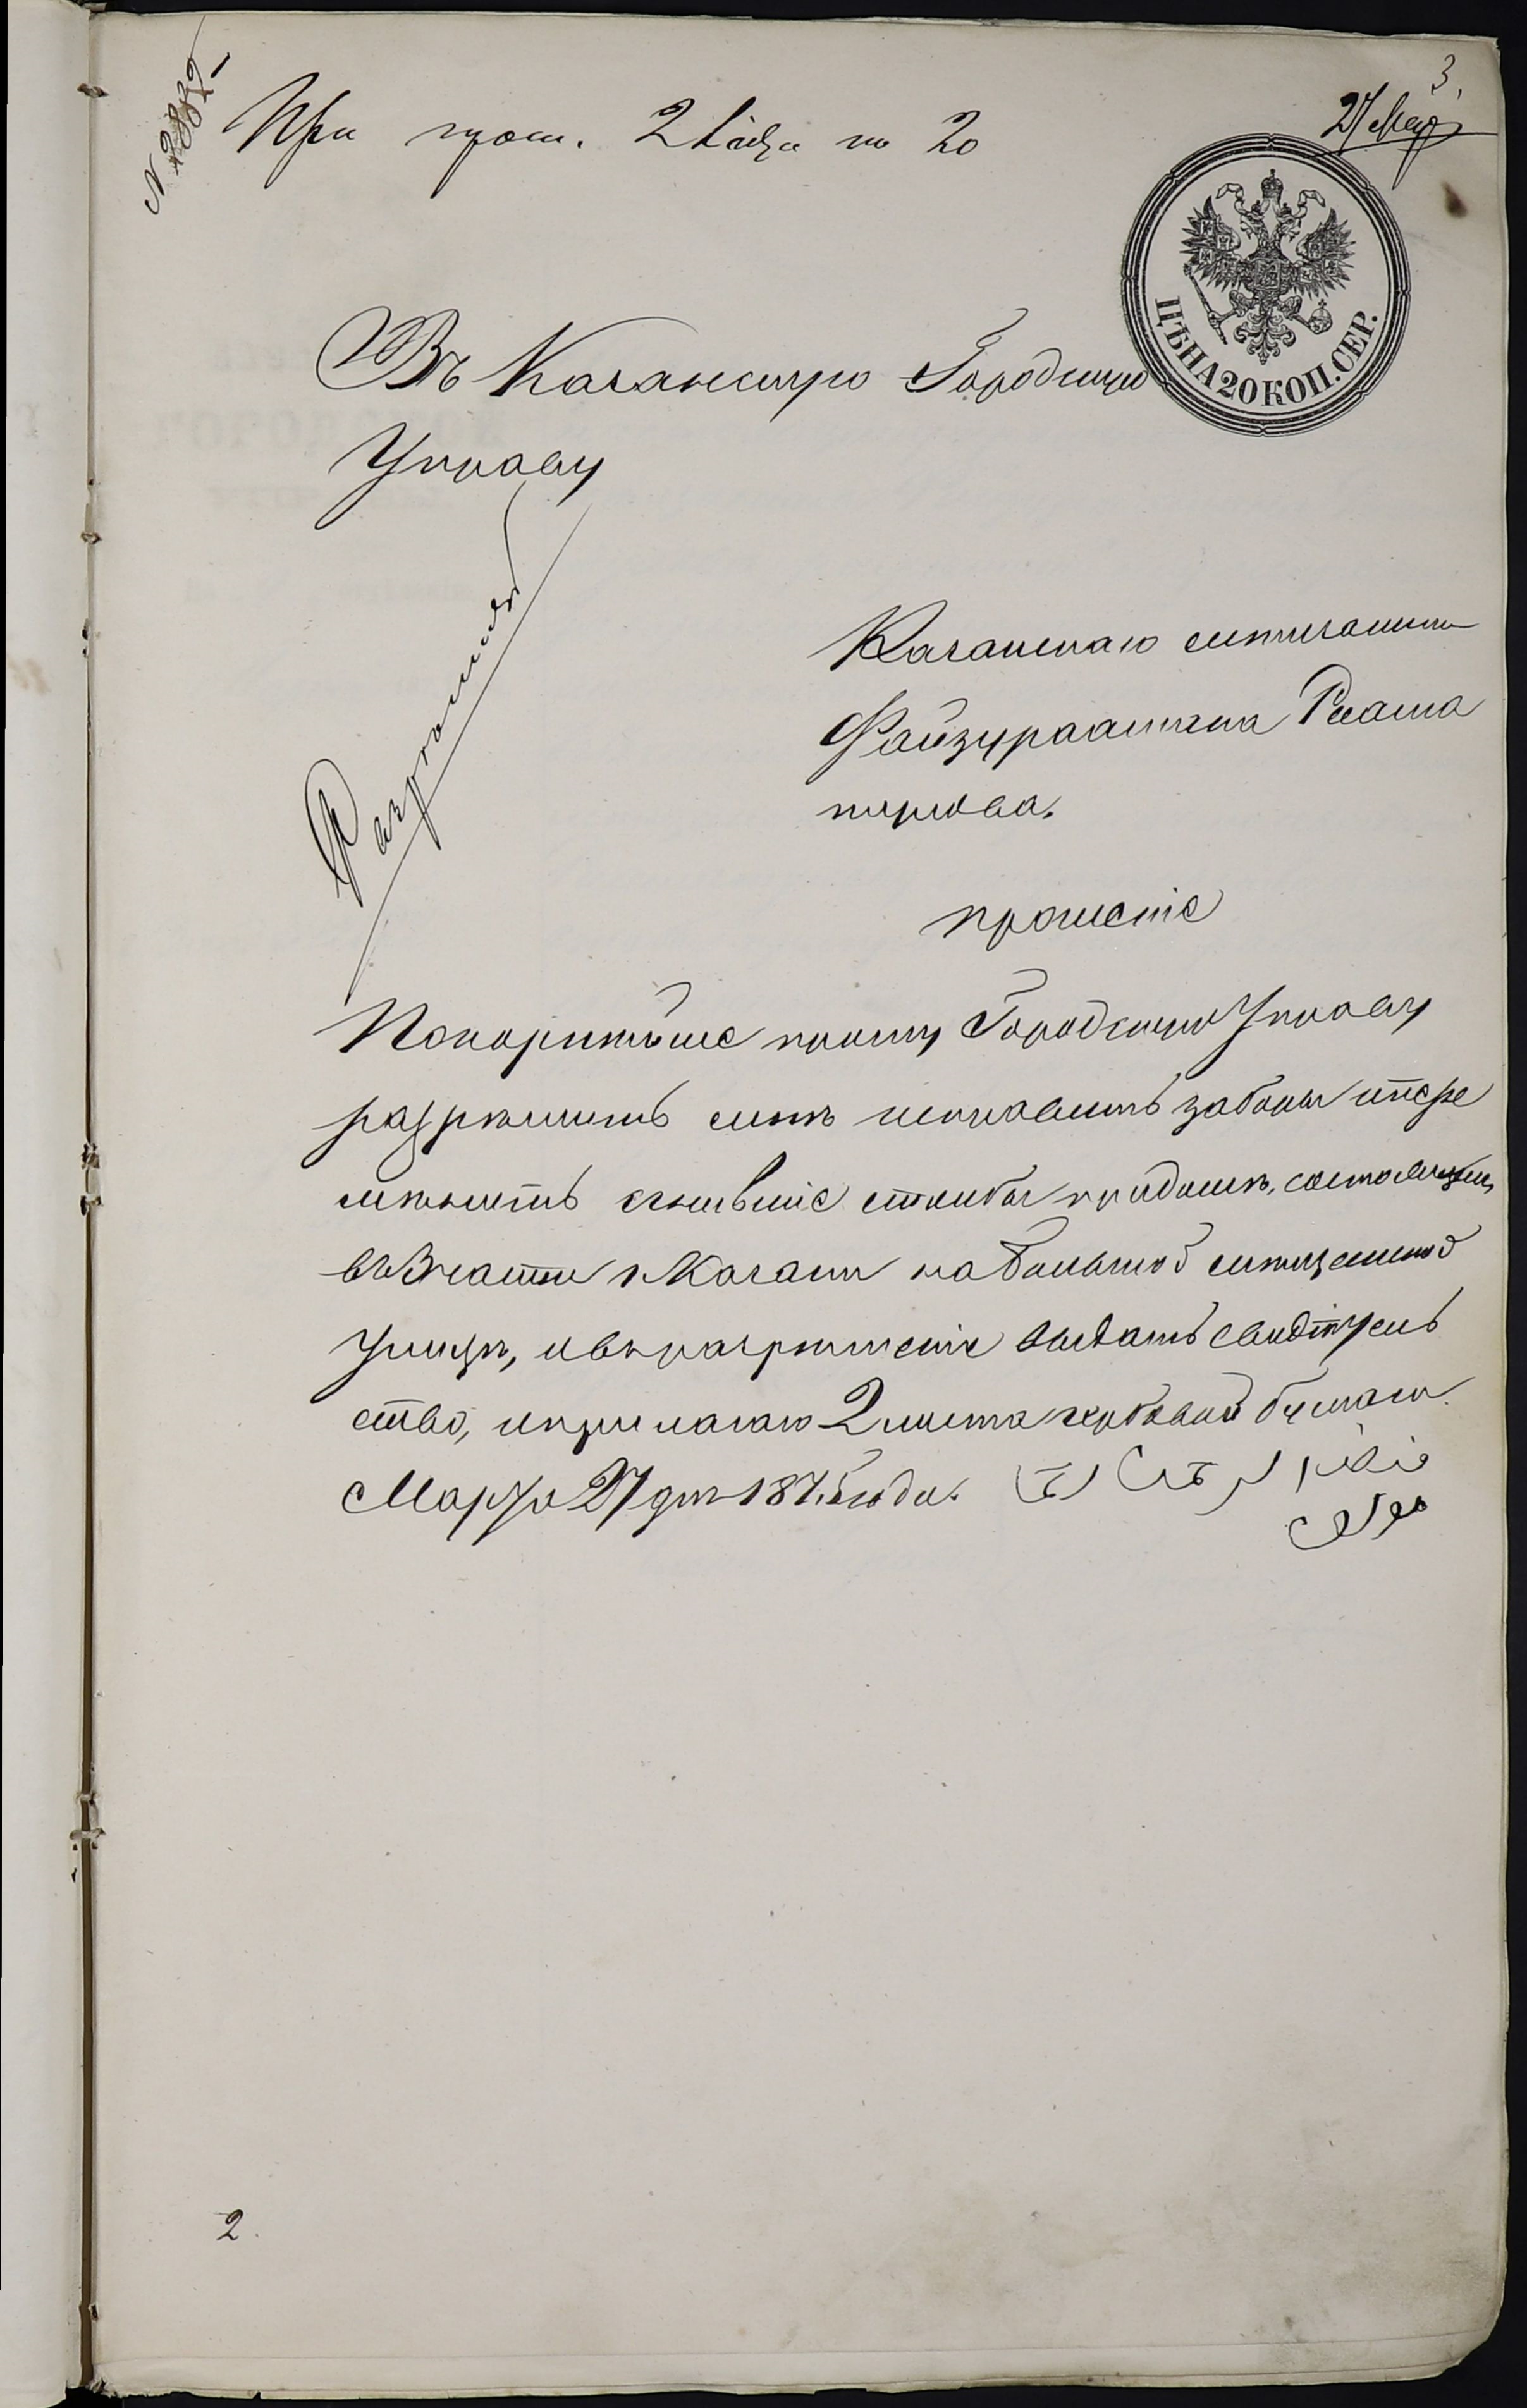 3.
27 Мар
При прош. 2 листа по 20
ЦѢНА 20 КОП. СЕР.
Въ Казанскую Городскую
Управу
Разрѣшить
Казанскаго
Файзурахмана
прошеніе
Покорнѣйше прошу Городскую Управу
разрѣшить мнѣ исправить заборы и пере
мѣнить сгнившіе столбы при домѣ, состоящемъ
въ 3 части г. Казани на Большой Мещанской
улицѣ, и въ разрѣшеніе выдать свидѣтель
ство, и прилагаю 2 листа гербовой бумаги.
Марта 27 дня 1875 года.
2.